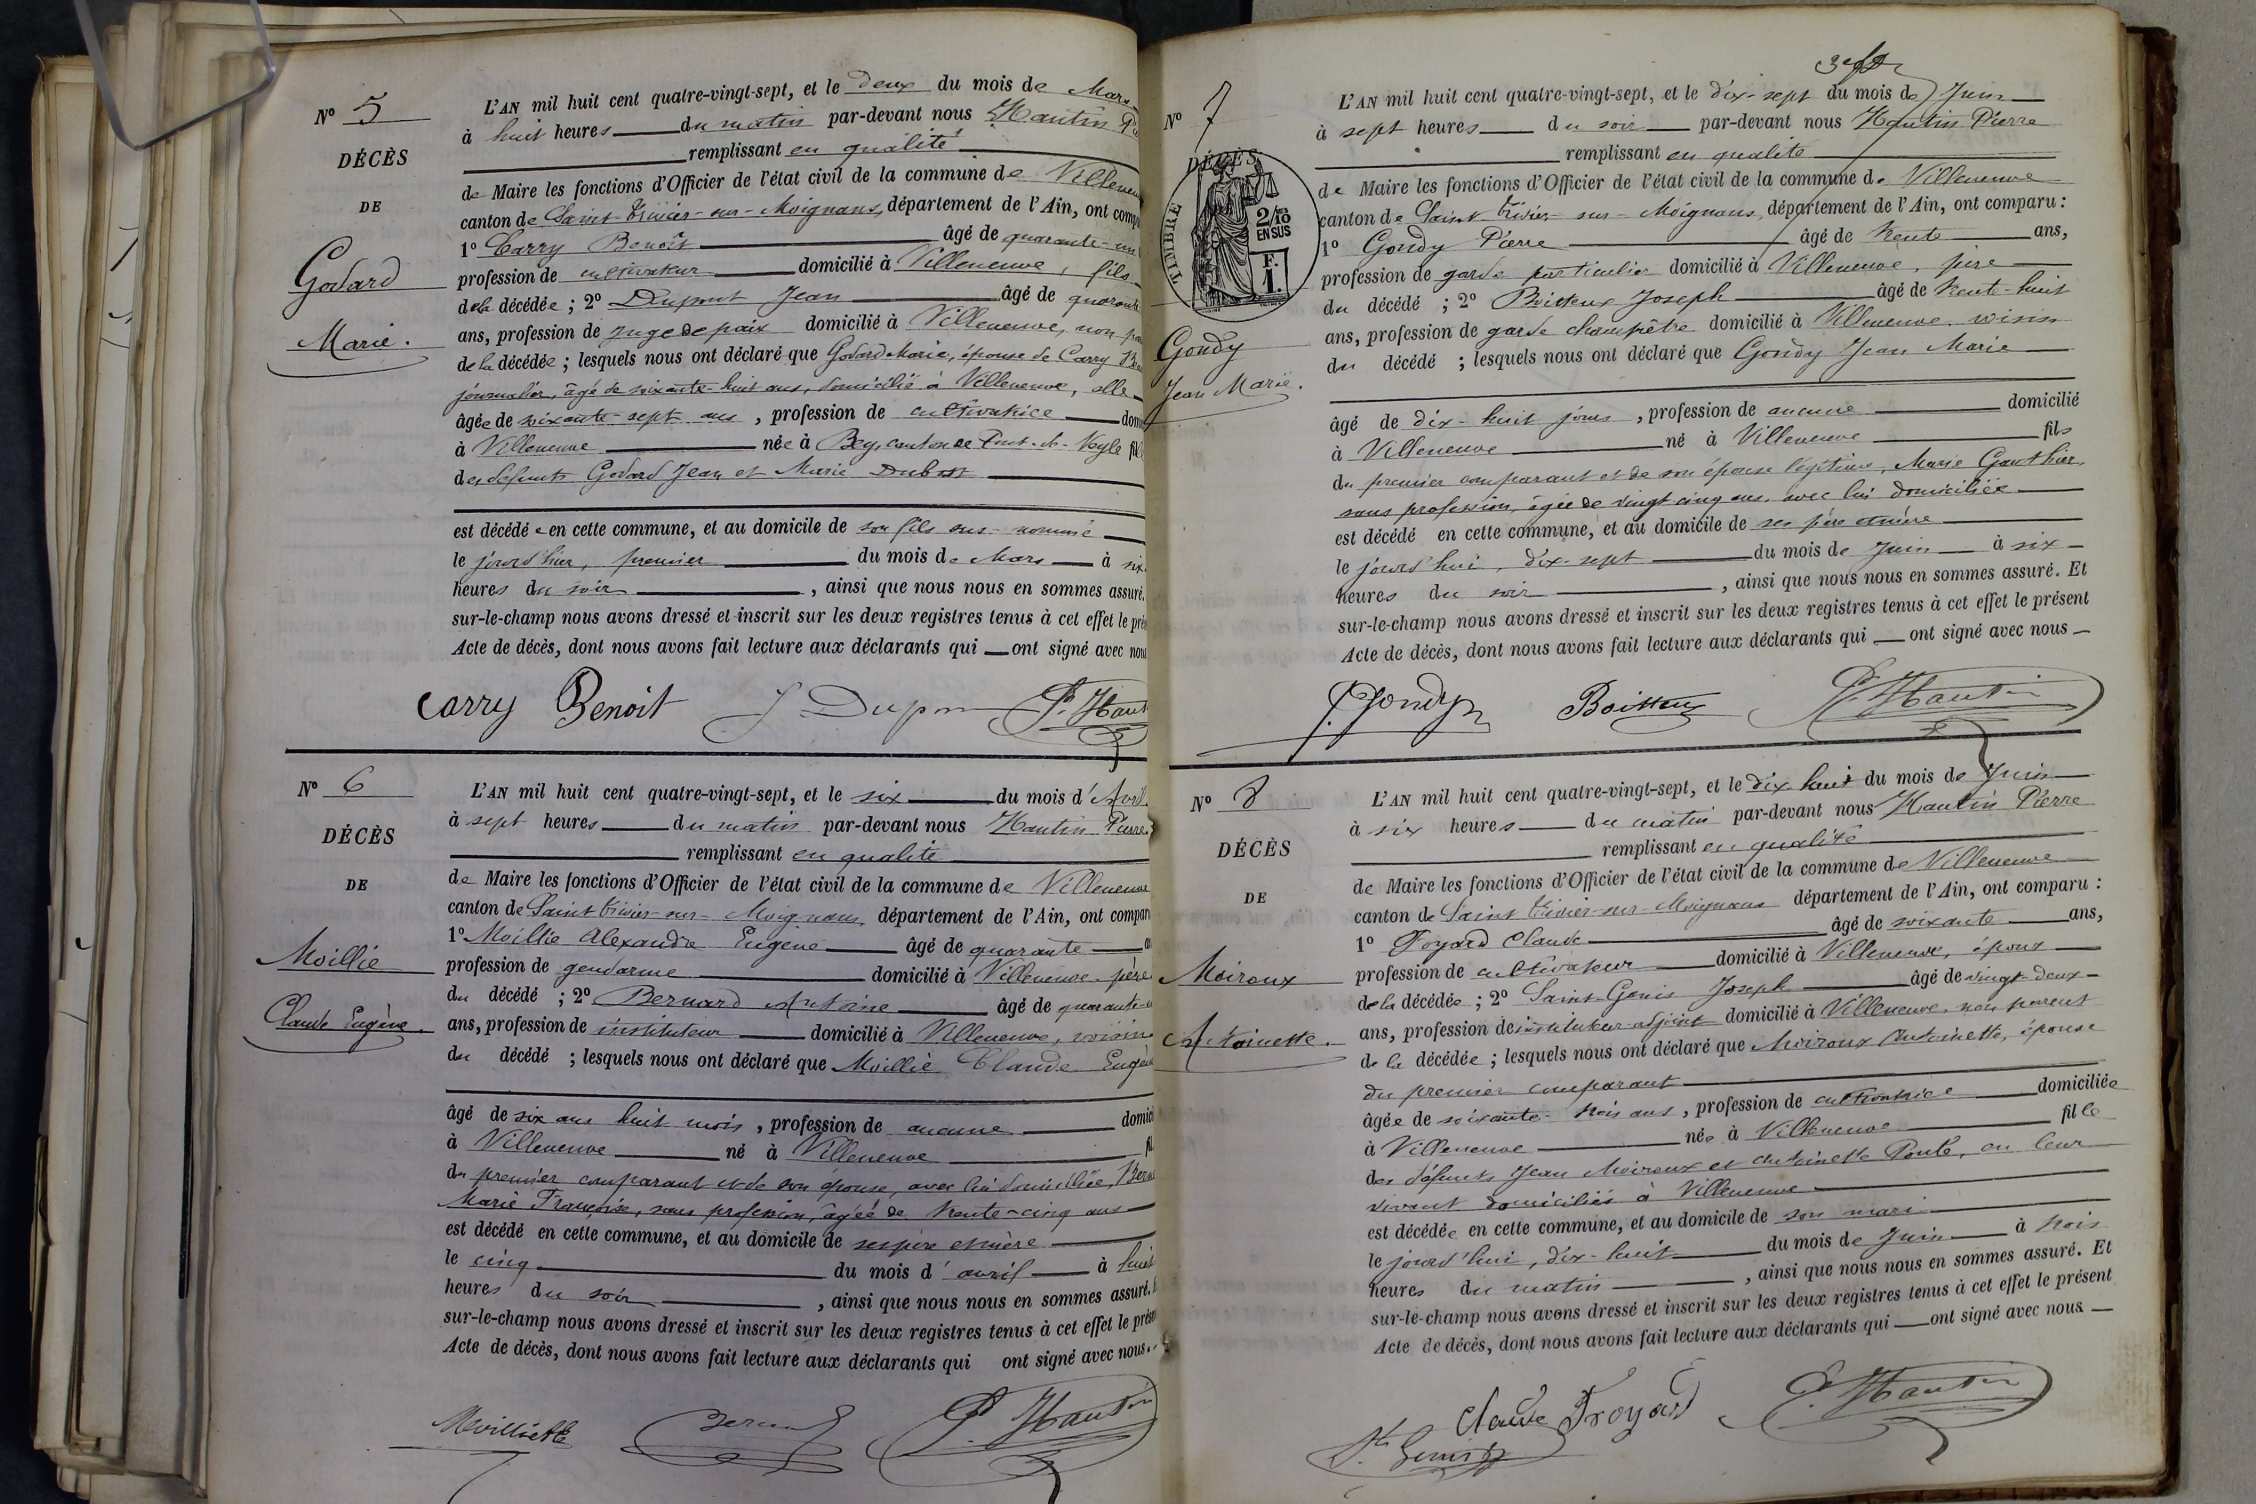 Nº 5
DÉCÈS
DE
Godard
Marie.
L'AN mil huit cent quatre-vingt-sept, et le deux du mois de Mars
à huit heures du matin par-devant nous Hautin
remplissant en qualité
de Maire les fonctions d'Officier de l'état civil de la commune de
canton de Saint Trivier-sur-Moignans, département de l'Ain, ont
1º Carry Benoît âgé de quarante-un
profession de cultivateur domicilié à Villeneuve, fils
de la décédée ; 2º Dupont Jean âgé de
ans, profession de juge de paix domicilié à Villeneuve, non
de la décédée ; lesquels nous ont déclaré que Godard Marie, épouse de Carry
journalier, âgé de soixante-huit ans, domicilié à Villeneuve, elle
âgée de soixante-sept ans, profession de cultivatrice
à Villeneuve née à Bey, canton de Pont-de-Veyle
des défunts Godard Jean et Marie Dubost
est décédée en cette commune, et au domicile de son fils sus-nommé
le jourd'hier, premier du mois de Mars à six
heures du soir, ainsi que nous nous en sommes assuré.
sur-le-champ nous avons dressé et inscrit sur les deux registres tenus à cet effet le
Acte de décès, dont nous avons fait lecture aux déclarants qui ont signé avec nous
Carry Benoit J. Dupon P. Haut
Nº 6
DÉCÈS
DE
Moillié
Claude Eugène.
L'AN mil huit cent quatre-vingt-sept, et le six du mois d'Avril
à sept heures du matin par-devant nous Hautin Pierre
remplissant en qualité
de Maire les fonctions d'Officier de l'état civil de la commune de Villeneuve
canton de Saint Trivier-sur-Moignans, département de l'Ain, ont
1º Moillié Alexandre Eugène âgé de quarante
profession de gendarme domicilié à Villeneuve, père
du décédé ; 2º Bernard Antoine âgé de
ans, profession de instituteur domicilié à Villeneuve, voisin
du décédé ; lesquels nous ont déclaré que Moillié Claude Eugène
âgé de six ans huit mois, profession de aucune
à Villeneuve né à Villeneuve
du premier comparant et de son épouse, avec lui domiciliée,
Marie Françoise, sans profession, âgée de trente-cinq ans
est décédé en cette commune, et au domicile de ses père et mère
le cinq du mois d'avril à huit
heures du soir, ainsi que nous nous en sommes assuré.
sur-le-champ nous avons dressé et inscrit sur les deux registres tenus à cet effet le
Acte de décès, dont nous avons fait lecture aux déclarants qui ont signé avec nous.
P. Hautin
Nº 7
DÉCÈS
TIMBRE
2/10 EN SUS
F. 1.
Gondy
Jean Marie.
L'AN mil huit cent quatre-vingt-sept, et le dix-sept du mois de Juin
à sept heures du soir par-devant nous Hautin Pierre
remplissant en qualité
de Maire les fonctions d'Officier de l'état civil de la commune de Villeneuve
canton de Saint Trivier-sur-Moignans, département de l'Ain, ont comparu :
1º Gondy Pierre âgé de trente ans,
profession de garde particulier domicilié à Villeneuve, père
du décédé ; 2º Boisseux Joseph âgé de trente-huit
ans, profession de garde champêtre domicilié à Villeneuve, voisin
du décédé ; lesquels nous ont déclaré que Gondy Jean Marie
âgé de dix-huit jours, profession de aucune domicilié
à Villeneuve né à Villeneuve fils
du premier comparant et de son épouse légitime, Marie Gauthier,
sans profession, âgée de vingt cinq ans, avec lui domiciliée
est décédé en cette commune, et au domicile de ses père et mère
le jourd'hui, dix-sept du mois de Juin à six
heures du soir, ainsi que nous nous en sommes assuré. Et
sur-le-champ nous avons dressé et inscrit sur les deux registres tenus à cet effet le présent
Acte de décès, dont nous avons fait lecture aux déclarants qui ont signé avec nous
Gondy Boisseux P. Hautin
Nº 8
DÉCÈS
DE
Moiroux
Antoinette.
L'AN mil huit cent quatre-vingt-sept, et le dix huit du mois de Juin
à six heures du matin par-devant nous Hautin Pierre
remplissant en qualité
de Maire les fonctions d'Officier de l'état civil de la commune de Villeneuve
canton de Saint Trivier-sur-Moignans département de l'Ain, ont comparu :
1º Froyard Claude âgé de soixante ans,
profession de cultivateur domicilié à Villeneuve, époux
de la décédée ; 2º Saint-Genis Joseph âgé de vingt-deux
ans, profession de instituteur-adjoint domicilié à Villeneuve, non parent
de la décédée ; lesquels nous ont déclaré que Moiroux Antoinette, épouse
du premier comparant
âgée de soixante-trois ans, profession de cultivatrice domiciliée
à Villeneuve née à Villeneuve fille
des défunts Jean Moiroux et Antoinette en leur
vivant domiciliés à Villeneuve
est décédée en cette commune, et au domicile de son mari
le jourd'hui, dix-huit du mois de Juin à trois
heures du matin, ainsi que nous nous en sommes assuré. Et
sur-le-champ nous avons dressé et inscrit sur les deux registres tenus à cet effet le présent
Acte de décès, dont nous avons fait lecture aux déclarants qui ont signé avec nous
Claude Froyard P. Hautin
St Genis